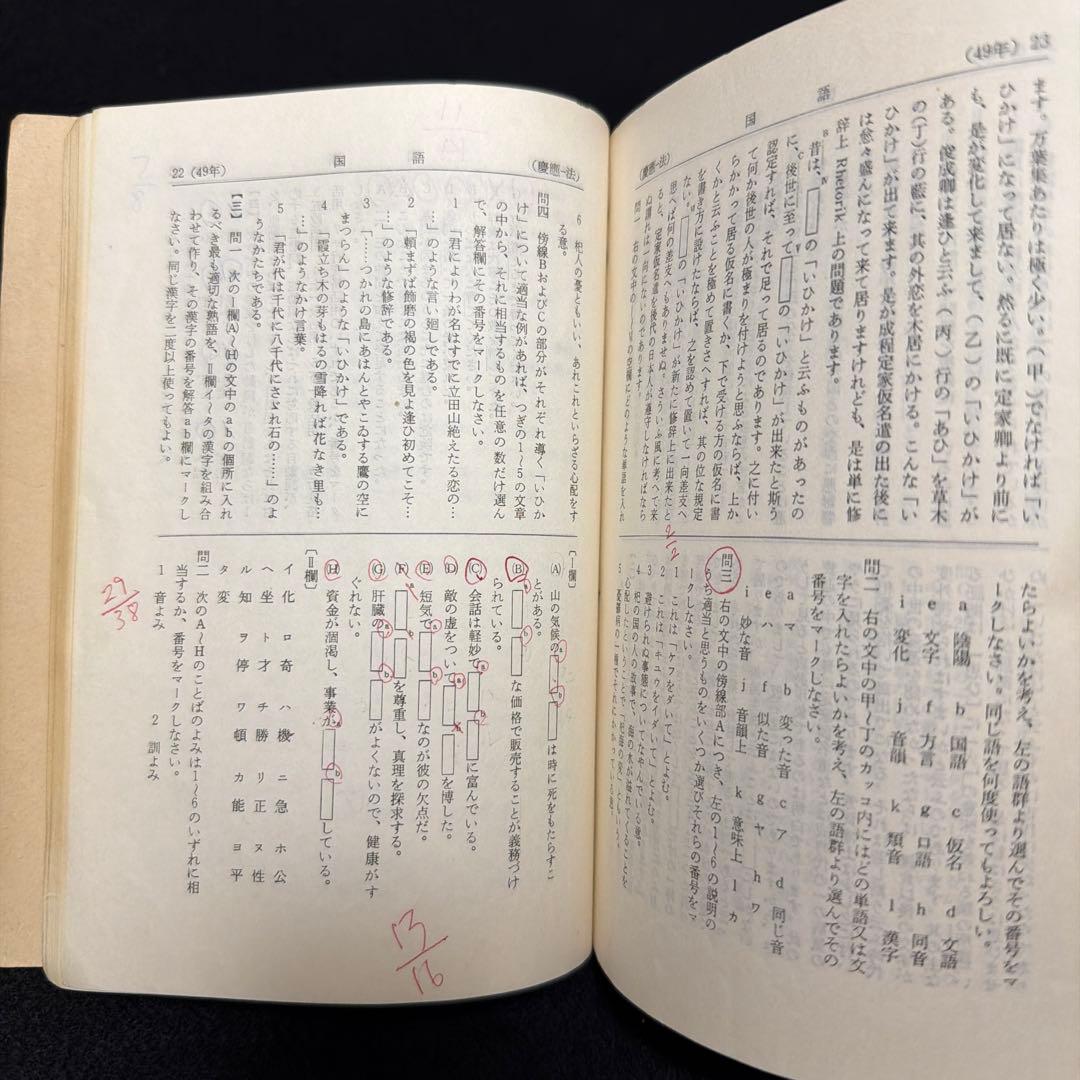 (49年) 23
国語
(慶應−法)
ます。万葉集あたりは極く少い。(甲)でなければ「い
ひかけ」になって居ない。然るに既に定家卿より前に
も、是が変化して来まして、(乙)の「いひかけ」が
ある。俊成卿は逢ひと云ふ(丙)行の「あひ」を草木
の(丁)行の藍に、其の外恋を木居にかける。こんな「い
ひかけ」が出て来ます。是が成程定家仮名遣の出た後に
は愈々盛んになって来て居りますけれども、是は単に修
辞上 Rhetorik 上の問題であります。
B昔は、Ⅳ□の「いひかけ」と云ふものがあったの
に、C後世に至ってⅤ□の「いひかけ」が出来たと斯う
認定すれば、それで足って居るのであります。之に付い
て何か後世の人が極まりを付けようと思ふならば、上か
らかかって居る仮名に書くか、下で受ける方の仮名に書
くかと云ふことを極めて置きさへすれば、其の位な規定
を書き方に設けたならば、之を認めて置いて一向差支へ
ない。□の「いひかけ」が新たに修辞上に出来たと
思へば何の差支へもありませぬ。さういふ風に考へて来
ると、定家仮名遣を後代の日本人が遵守しなければなら
ぬ謂れは一向にないのであります。
問一 右の文中の 空欄にどのような単語を入れ
たらよいかを考え、左の語群より選んでその番号をマ
ークしなさい。同じ語を何度使ってもよろしい。
a 陰陽 b 国語 c 仮名 d 文語
e 文字 f 方言 g 口語 h 同音
i 変化 j 音韻 k 類音 l 漢字
問二 右の文中の甲〜丁のカッコ内にはどの単語又は文
字を入れたらよいかを考え、左の語群より選んでその
番号をマークしなさい。
a マ b 変った音 c ア d 同じ音
e ハ f 似た音 g ヤ h ワ
i 妙な音 j 音韻上 k 意味上 l カ
問三 右の文中の傍線部Aにつき、左の1〜6の説明の
うち適当と思うものをいくつか選びそれらの番号をマ
ークしなさい。
1 これは「ケフをダいて」とよむ。
2 これは「キユウをイダいて」とよむ。
3 避けられぬ事態についてなやんでいる意。
4 杞の国の人の故事で、海の水が溢れてくることを
心配したということで「杞海の憂」ともいう。
5 憂鬱病の一種でそれにかかっている意。
2/2
22 (49年)
国語
(慶應−法)
6 杞人の憂ともいい、あれこれといらざる心配をす
る意。
問四 傍線BおよびCの部分がそれぞれ導く「いひか
け」について適当な例があれば、つぎの1〜5の文章
の中から、それに相当するものを任意の数だけ選ん
で、解答欄にその番号をマークしなさい。
1 「君によりわが名はすでに立田山絶えたる恋の…
…」のような言い廻しである。
2 「頼まずば飾磨の褐の色を見よ逢ひ初めてこそ…
…」のような修辞である。
3 「……つかれの島にあはんとやこゐする鷹の空に
まつらん」のような「いひかけ」である。
4 「霞立ち木の芽もはる雪降れば花なき里も…
…」のようなかけ言葉。
5 「君が代は千代に八千代にさゞれ石の……」のよ
うなかたちである。
〔三〕 問一 次のⅠ欄(A)〜(H)の文中のabの個所に入れ
るべき最も適切な熟語を、Ⅱ欄イ〜タの漢字を組み合
わせて作り、その漢字の番号を解答ab欄にマークし
なさい。同じ漢字を二度以上使ってもよい。
〔Ⅰ欄〕
(A) 山の気候のa□b□は時に死をもたらすこ
とがある。
(B) a□b□な価格で販売することが義務づけ
られている。
(C) 会話は軽妙でa□b□に富んでいる。
(D) 敵の虚をついてa□b□を博した。
(E) 短気でa□b□なのが彼の欠点だ。
(F) a□b□を尊重し、真理を探求する。
(G) 肝臓のa□b□がよくないので、健康がす
ぐれない。
(H) 資金が涸渇し、事業がa□b□している。
〔Ⅱ欄〕
イ 化 ロ 奇 ハ 機 ニ 急 ホ 公
ヘ 坐 ト 才 チ 勝 リ 正 ヌ 性
ル 知 ヲ 停 ワ 頓 カ 能 ヨ 平
タ 変
問二 次のA〜Hのことばのよみは1〜6のいずれに相
当するか、番号をマークしなさい。
1 音よみ 2 訓よみ
29/38
13/16